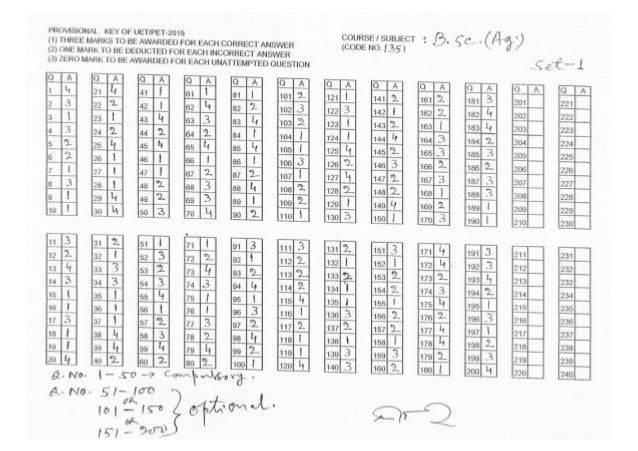 PROVISIONAL KEY OF UET/PET-2015
(1) THREE MARKS TO BE AWARDED FOR EACH CORRECT ANSWER
(2) ONE MARK TO BE DEDUCTED FOR EACH INCORRECT ANSWER
(3) ZERO MARK TO BE AWARDED FOR EACH UNATTEMPTED QUESTION
COURSE / SUBJECT : B.Sc.(Ag.)
(CODE NO. 135)
Set-1
Q A Q A Q A Q A Q A Q A Q A Q A Q A Q A Q A Q A
1 4 21 4 41 1 61 1 81 1 101 2 121 1 141 2 161 2 181 3 201 221
2 3 22 2 42 1 62 4 82 2 102 3 122 3 142 1 162 2 182 4 202 222
3 1 23 1 43 4 63 3 83 4 103 2 123 1 143 2 163 1 183 4 203 223
4 3 24 2 44 2 64 2 84 1 104 1 124 4 144 4 164 3 184 2 204 224
5 2 25 4 45 4 65 4 85 4 105 1 125 4 145 2 165 3 185 3 205 225
6 2 26 1 46 1 66 1 86 1 106 3 126 2 146 3 166 2 186 2 206 226
7 1 27 1 47 1 67 2 87 2 107 1 127 4 147 2 167 3 187 3 207 227
8 3 28 1 48 2 68 3 88 4 108 2 128 2 148 2 168 1 188 3 208 228
9 1 29 4 49 2 69 3 89 1 109 2 129 1 149 4 169 2 189 1 209 229
10 1 30 4 50 3 70 4 90 2 110 1 130 3 150 1 170 3 190 1 210 230
11 3 31 2 51 1 71 1 91 3 111 3 131 2 151 3 171 4 191 3 211 231
12 2 32 1 52 3 72 2 92 1 112 2 132 1 152 1 172 4 192 3 212 232
13 4 33 3 53 2 73 4 93 2 113 2 133 2 153 2 173 4 193 2 213 233
14 3 34 3 54 3 74 3 94 4 114 2 134 1 154 2 174 3 194 2 214 234
15 1 35 1 55 4 75 1 95 1 115 4 135 1 155 1 175 4 195 1 215 235
16 1 36 1 56 1 76 1 96 3 116 1 136 3 156 2 176 2 196 3 216 236
17 3 37 1 57 2 77 3 97 2 117 2 137 2 157 2 177 4 197 1 217 237
18 1 38 4 58 3 78 2 98 4 118 1 138 1 158 1 178 4 198 2 218 238
19 1 39 4 59 4 79 4 99 2 119 1 139 3 159 3 179 2 199 3 219 239
20 4 40 2 60 2 80 2 100 1 120 4 140 3 160 2 180 1 200 4 220 240
Q. No. 1-50 → Compulsory.
Q. No. 51-100
OR
101-150 } optional.
OR
151-200